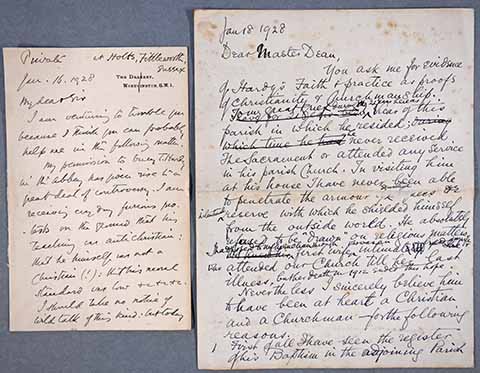 Private at Holts, Fittleworth,
Sussex
Jan. 16. 1928
THE DEANERY,
WESTMINSTER, S.W.1.
My dear Sir
I am venturing to trouble you
because I think you can probably
help me in the following matter.
My permission to bury T. Hardy
in the abbey has given rise to a
great deal of controversy. I am
receiving every day furious pro-
tests on the ground that his
teaching was antichristian:
that he himself was not a
Christian (!): that his moral
standard was low
I should take no notice of
wild talk of this kind. But today
Jan 18 1928
Dear Master Dean,
You ask me for evidence
of Hardy's Faith & practice as proofs
of Christianity & Churchmanship.
Vicar of this
parish in which he resided,
which time he had never received
The Sacrament or attended any Service
in his parish Church. In visiting him
at his house I have never been able
to penetrate the armour of
reserve with which he shielded himself
from the outside world. He absolutely
refused to be drawn on religious matters.
first wife
attended our Church till her last
illness, her death in 1912 ended this hope.
Nevertheless I sincerely believe him
to have been at heart a Christian
and a Churchman for the following
reasons.
1 First of all I have seen the register
of his Baptism in the adjoining Parish